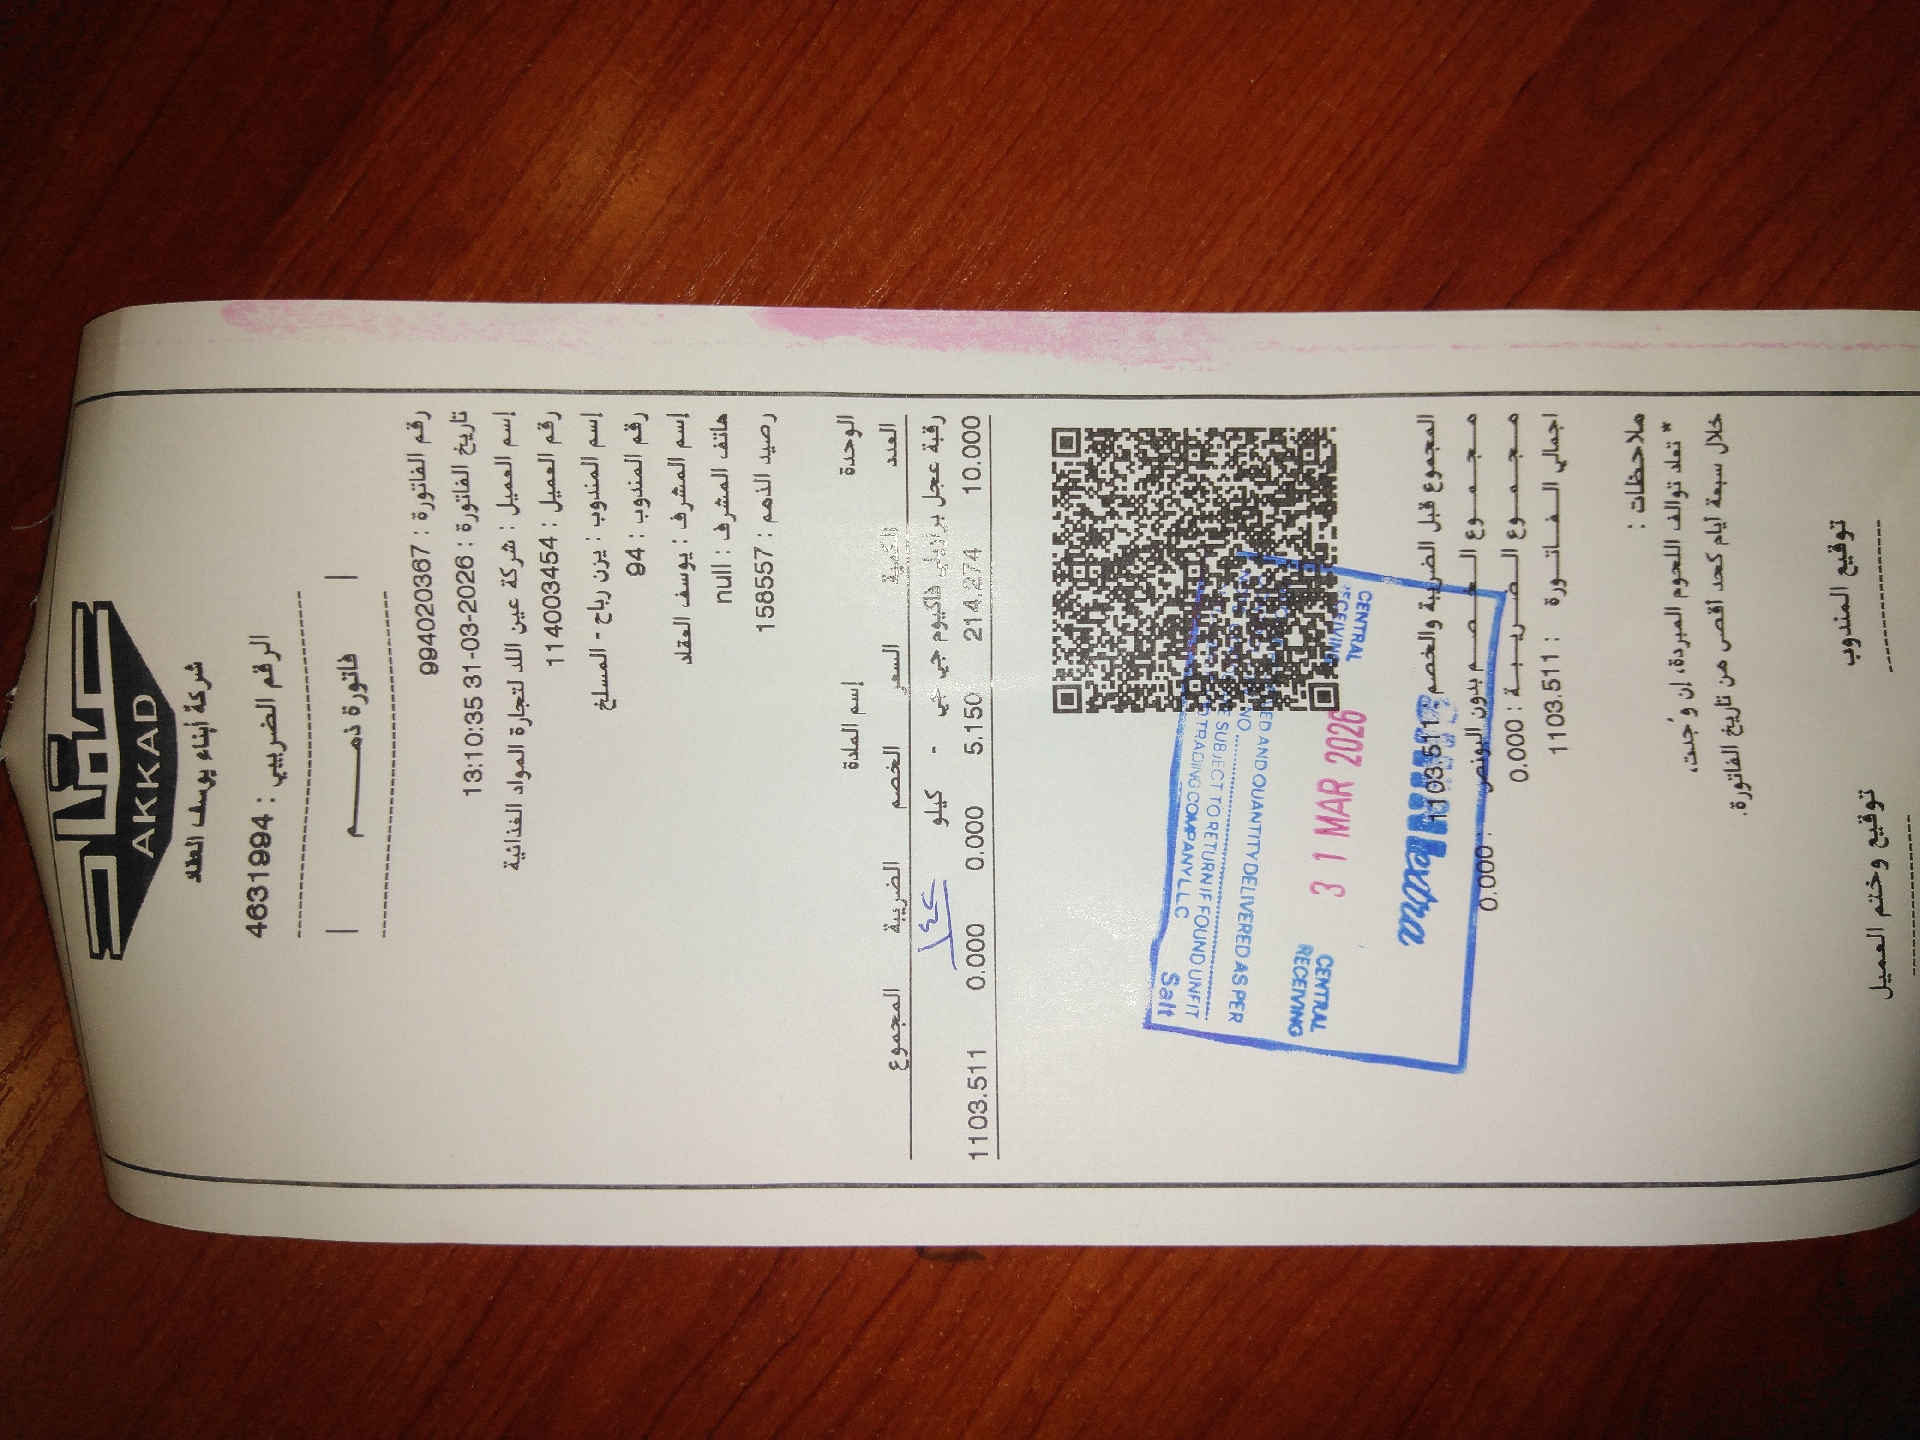 عقاد
AKKAD
شركة أبناء يوسف العقاد
الرقم الضريبي : 4631994
فاتورة ذمــــــم
رقم الفاتورة : 9940203​67
تاريخ الفاتورة : 2026-03-31 13:10:35
إسم العميل : شركة عين اللد لتجارة المواد الغذائية
رقم العميل : 114003454
إسم المندوب : يزن رباح - المسلخ
رقم المندوب : 94
إسم المشرف : يوسف العقاد
هاتف المشرف : null
رصيد الذمم : 158557
الوحدة إسم المادة
العدد الكمية السعر الخصم الضريبة المجموع
رقبة عجل برازيلي فاكيوم جي جي - كيلو
10.000 214.274 5.150 0.000 0.000 1103.511
Salt
TRADING COMPANY LLC
SUBJECT TO RETURN IF FOUND UNFIT
NO
AND QUANTITY DELIVERED AS PER
CENTRAL RECEIVING
31 MAR 2026
CENTRAL RECEIVING
extra
المجموع قبل الضريبة والخصم : 1103.511
مجموع الخصم بدون البونص : 0.000
مجموع الضريبة : 0.000
اجمالي الفاتورة : 1103.511
ملاحظات :
* تفقد توالف اللحوم المبردة، إن وُجدت،
خلال سبعة ايام كحد اقصى من تاريخ الفاتورة.
توقيع المندوب
توقيع وختم العميل